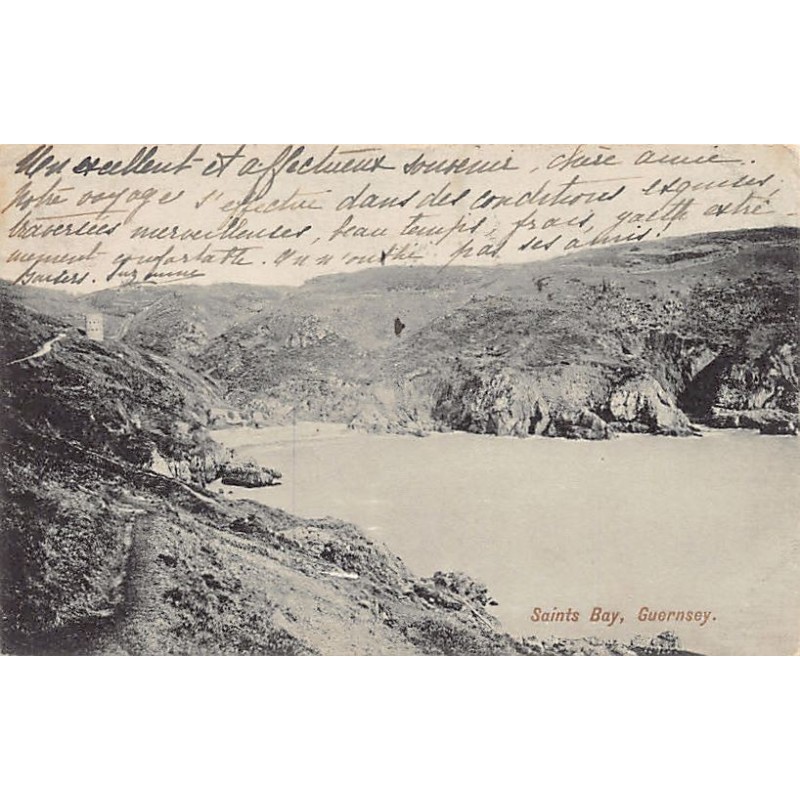 Un excellent et affectueux souvenir, chère amie.
Notre voyage s'effectue dans des conditions exquises,
traversées merveilleuses, beau temps, frais,
mement confortable. On n'oublie pas ses amis!
Baisers. Suzanne
Saints Bay, Guernsey.